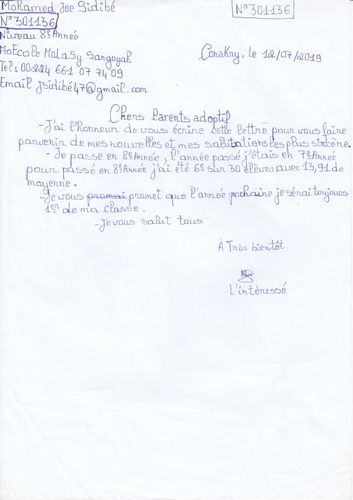 Mohamed Joe Sidibé
N°301136
N°301136
Niveau 8e Anneé
Conakry, le 12/07/2019
Tel: 00224 661 07 74 09
Email jsidibé47@gmail.com
Chers Parents adoptif
-J'ai l'Honneur de vous écrire cette lettre pour vous faire
parvenir de mes nouvelles et mes salutations les plus sincère.
- Je passe en 8e Année, l'année passé j'étais en 7e Année
pour passé en 8e Année j'ai été 6e sur 30 élèves avec 13,91 de
moyenne.
-Je vous promai promet que l'année pochaine je serai toujours
1er de ma classe.
-Je vous salut tous
À Très bientôt
L'intéressé